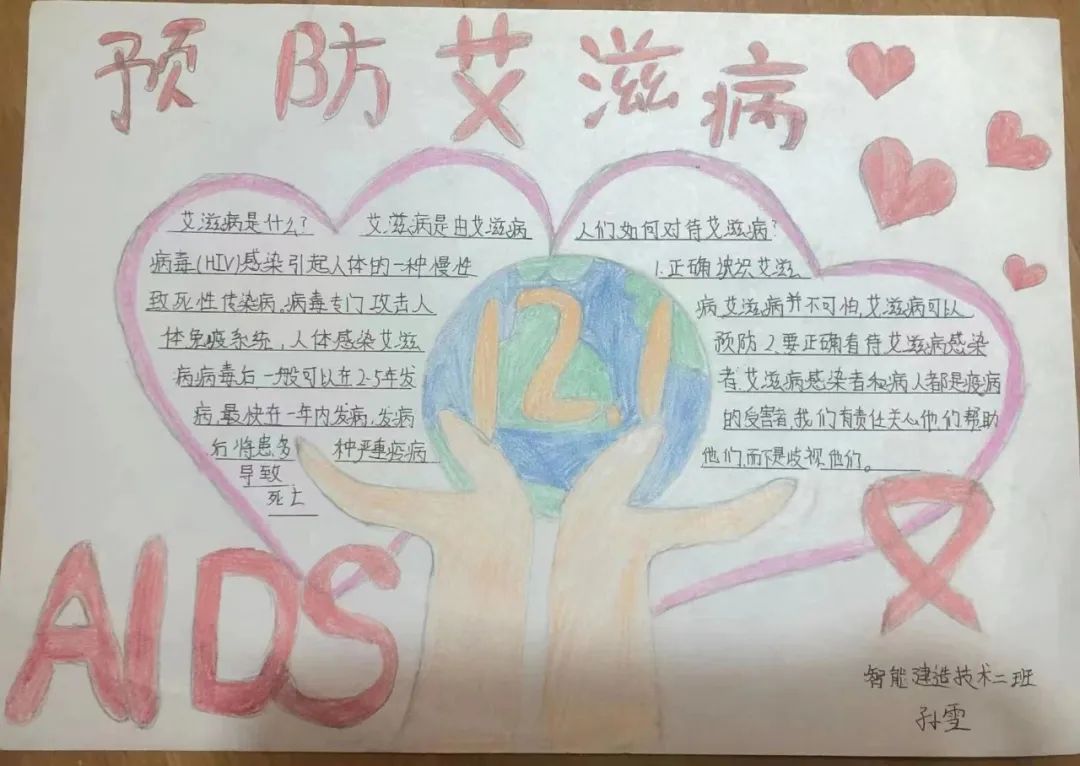 预防艾滋病
艾滋病是什么? 艾滋病是由艾滋病
病毒(HIV)感染引起人体的一种慢性
致死性传染病。病毒专门攻击人
体免疫系统,人体感染艾滋
病病毒后一般可以在2-5年发
病,最快在一年内发病,发病
后将患多 种严重疫病
导致
死亡
人们如何对待艾滋病?
1.正确 识艾滋
病,艾滋病并不可怕,艾滋病可以
预防2.要正确看待艾滋病感染
者,艾滋病感染者和病人都是疫病
的受害者,我们有责任关心他们帮助
他们,而不是歧视他们。
12.1
AIDS
智能建造技术二班
孙雪